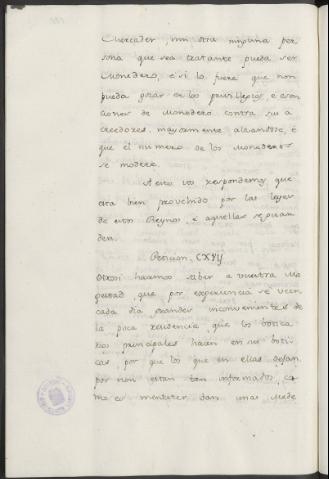 Mercader, ni otra ninguna per
sona que sea tratante pueda ser
Monedero, e si lo fuere que non
pueda gozar de los previllegios, e exen
ciones de Monedero contra sus a
creedores, mayormente alzandose, e
que el numero de los Monederos
se modere.
A esto vos respondemos, que
esta bien proveido por las leyes
de estos Reynos, e aquellas se guar
den.
Peticion, CXVIJ
Otrosi hacemos saber a vuestra Ma
gestad, que por experiencia se veen
cada dia grandes inconvenientes de
la poca residencia, que los botica
rios principales hacen en sus boti
cas, por que los que en ellas dejan
por non estar tan informados, co
mo es menester dan unas mede